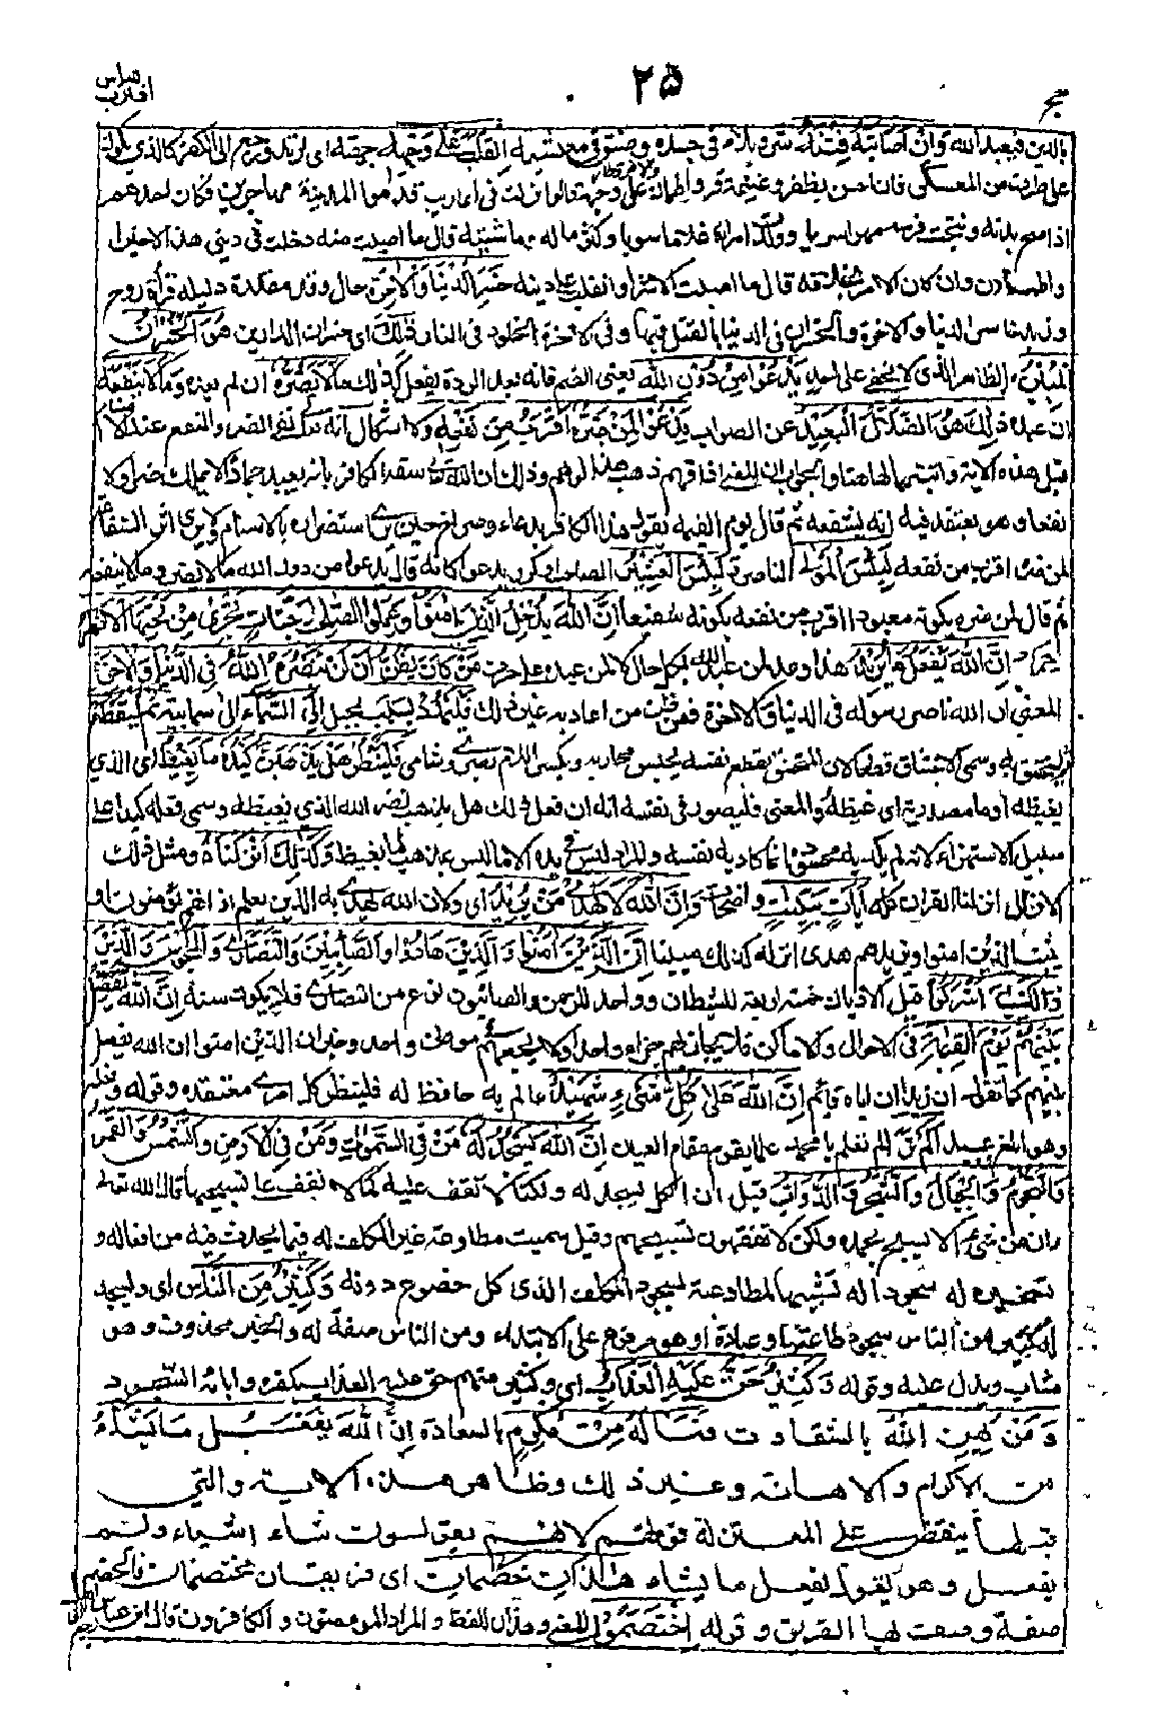 اقترب
٢٥
حج
بالدين فيعبد الله وَاِنْ اَصَابَتْهُ فِتْنَةُ شر وبلاء فى جسده وضيق فى معيشته انْقَلَبَ عَلٰى وَجْهِهٖ جهته اى ارتد ورجع الى الكفر كالذى يكون
على طرف من العسكر فان احس بظفر وغنيمة قر واطمان والا فر وطار على وجهه قالوا نزلت فى اعاريب قدموا المدينة مهاجرين فكان احدهم
اذا صح بدنه ونتجت فرسه مهرا سريا وولدت امراته غلاما سويا وكثر ماله وماشيته قال ما اصبت منذ دخلت فى دينى هذا الا خيرا
واطمان وان كان الامر بخلافه قال ما اصبت الا شرا وانقلب عن دينه خَسِرَ الدُّنْيَا وَالْاٰخِرَةَ حال وقد مقدرة دليله قراءة روح
وزيد خاسر الدنيا والاخرة والخسران فى الدنيا بالقتل فيها وفى الاخرة الخلود فى النار ذٰلِكَ اى خسران الدارين هُوَ الْخُسْرَانُ
الْمُبِيْنُ الظاهر الذى لا يخفى على احد يَدْعُوْا مِنْ دُوْنِ اللّٰهِ يعنى الصنم فانه بعد الردة يفعل كذلك مَا لَا يَضُرُّهٗ ان لم يعبده وَمَا لَا يَنْفَعُهٗ
ان عبده ذٰلِكَ هُوَ الضَّلٰلُ الْبَعِيْدُ عن الصواب يَدْعُوْا لَمَنْ ضَرُّهٗ اَقْرَبُ مِنْ نَفْعِهٖ والاشكال انه تعالى نفى الضر والنفع عن الاصنام
قبل هذه الاية واثبتهما لها هنا والجواب ان المعنى اذا فهم ذهب هذا الوهم وذلك ان الله تعالى سفه الكافر بانه يعبد جمادا لا يملك ضرا ولا
نفعا وهو يعتقد فيه انه ينتفعه ثم قال يوم القيمة يقول هذا الكافر بدعاء وصراخ حين يرى استضراره بالاصنام ولا يرى اثر الشفاعة
لمن ضره اقرب من نفعه لَبِئْسَ الْمَوْلٰى الناصر وَلَبِئْسَ الْعَشِيْرُ الصاحب او كرر يدعوا كانه قال يدعوا يدعوا من دون الله ما لا يضره وما لا ينفعه
ثم قال لمن ضره بكونه معبودا اقرب من نفعه بكونه شفيعا اِنَّ اللّٰهَ يُدْخِلُ الَّذِيْنَ اٰمَنُوْا وَعَمِلُوا الصّٰلِحٰتِ جَنّٰتٍ تَجْرِىْ مِنْ تَحْتِهَا الْاَنْهٰرُ
اِنَّ اللّٰهَ يَفْعَلُ مَا يُرِيْدُ هذا وعد لمن عبد الله بكل حال لا لمن عبده على حرف مَنْ كَانَ يَظُنُّ اَنْ لَّنْ يَّنْصُرَهُ اللّٰهُ فِى الدُّنْيَا وَالْاٰخِرَةِ
المعنى ان الله ناصر رسوله فى الدنيا والاخرة فمن ظن من اعاديه غير ذلك فَلْيَمْدُدْ بِسَبَبٍ بحبل اِلَى السَّمَآءِ الى سماء بيته ثُمَّ لْيَقْطَعْ
ثم ليختنق به وسمى الاختناق قطعا لان المختنق يقطع نفسه بحبس مجاريه وبكسر اللام بصرى وشامى فَلْيَنْظُرْ هَلْ يُذْهِبَنَّ كَيْدُهٗ مَا يَغِيْظُ اى الذى
يغيظه او ما مصدرية اى غيظه والمعنى فليصور فى نفسه انه ان فعل ذلك هل يذهب نصر الله الذى يغيظه وسمى فعله كيدا على
سبيل الاستهزاء لانه لم يكد به محسوده انما كاد به نفسه والمراد ليس فى يده الا ما ليس بمذهب لما يغيظ وَكَذٰلِكَ اَنْزَلْنٰهُ ومثل ذلك
الانزال انزلنا القران كله اٰيٰتٍۢ بَيِّنٰتٍ واضحات وَّاَنَّ اللّٰهَ يَهْدِىْ مَنْ يُّرِيْدُ اى ولان الله يهدى به الذين يعلم انهم يؤمنون او
يثبت الذين امنوا ويزيدهم هدى انزله كذلك مبينا اِنَّ الَّذِيْنَ اٰمَنُوْا وَالَّذِيْنَ هَادُوْا وَالصَّابِئِيْنَ وَالنَّصٰرٰى وَالْمَجُوْسَ وَالَّذِيْنَ
اَشْرَكُوْا قيل الاديان خمسة اربعة للشيطان وواحد للرحمن والصابئون نوع من النصارى فلا يكون ستة اِنَّ اللّٰهَ يَفْصِلُ
بَيْنَهُمْ يَوْمَ الْقِيٰمَةِ فى الاحوال والاماكن فلا يجازيهم جزاء واحدا ولا يجمعهم فى موطن واحد وخبر ان الذين امنوا ان الله يفصل
بينهم كما تقول ان زيدا ان اباه قائم اِنَّ اللّٰهَ عَلٰى كُلِّ شَىْءٍ شَهِيْدٌ عالم به حافظ له فلينظر كل امرئ معتقده وقوله وفعله
وهو ابلغ وعيد اَلَمْ تَرَ الم تعلم يا محمد علما يقوم مقام العيان اَنَّ اللّٰهَ يَسْجُدُ لَهٗ مَنْ فِى السَّمٰوٰتِ وَمَنْ فِى الْاَرْضِ وَالشَّمْسُ وَالْقَمَرُ
وَالنُّجُوْمُ وَالْجِبَالُ وَالشَّجَرُ وَالدَّوَآبُّ قيل ان الكل يسجد له ولكنا لا نقف عليه كما لا نقف على تسبيحها قال الله تعالى
وان من شىء الا يسبح بحمده ولكن لا تفقهون تسبيحهم وقيل سميت مطاوعة غير المكلف له فيما يحدث فيه من افعاله و
تسخيره له سجودا له تشبيها لمطاوعته بسجود المكلف الذى كل خضوع دونه وَكَثِيْرٌ مِّنَ النَّاسِ اى ويسجد
له كثير من الناس سجود طاعة وعبادة او هو مرفوع على الابتداء ومن الناس صفة له والخبر محذوف وهو
مثاب ويدل عليه وقوله وَكَثِيْرٌ حَقَّ عَلَيْهِ الْعَذَابُ اى وكثير منهم حق عليه العذاب بكفره وابائه السجود
وَمَنْ يُّهِنِ اللّٰهُ بالشقاوة فَمَا لَهٗ مِنْ مُّكْرِمٍ بالسعادة اِنَّ اللّٰهَ يَفْعَلُ مَا يَشَآءُ
من الاكرام والاهانة وغير ذلك وظاهر هذه الاية والتى
قبلها ينقض على المعتزلة قولهم لانهم يقولون شاء اشياء ولم
يفعل وهو يقول يفعل ما يشاء هٰذٰنِ خَصْمٰنِ اى فريقان مختصمان فالخصم
صفة وصف لها الفريق وقوله اخْتَصَمُوْا للمعنى وهذان للفظ والمراد المؤمنون والكافرون قال ابن عباس